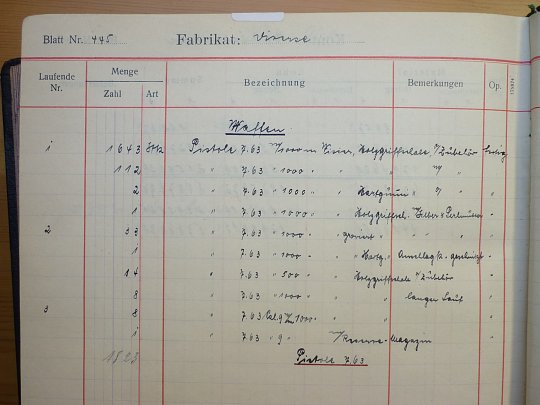 Blatt Nr. 445 Fabrikat: Diverse
Laufende Nr. Menge Bezeichnung Bemerkungen Op.
Zahl Art
Waffen.
1 1643 Stk Pistole 7.63 m/1000 m Visier, Holzgriffschale, m/Zubehör
112 " " 7.63 " 1000 " " " "/ "
2 " " 7.63 " 1000 " " Hartgummi " "/ "
1 " " 7.63 " 1000 " " Holzgriffsch. Silber & Perlmutter "
2 33 " " 7.63 " 1000 " graviert " " "
1 " " 7.63 " 1000 " " Hartg. " Anschlag k. geschnitzt "
14 " " 7.63 " 500 " " Holzgriffschale m/Zubehör "
8 " " 7.63 " 1000 " " langer Lauf "
3 8 " " 7.63 1000 " "
1 " " 7.63 " 9 " Reserve-Magazin "
1823 Pistole 7.63